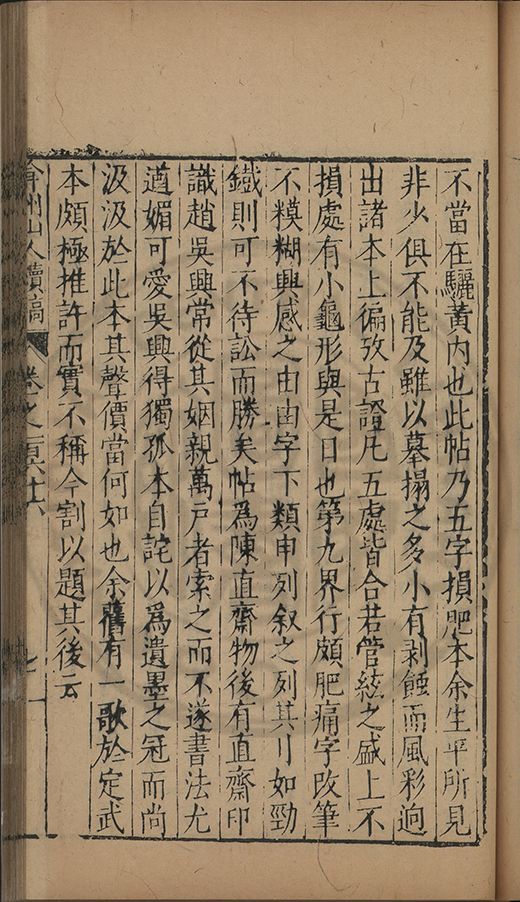 不當在驪黃内也此帖乃五字損肥本余生平所見
非少俱不能及雖以摹搨之多小有剥蝕而風彩逈
出諸本上徧攷古證凡五處皆合若管絃之盛上不
損處有小龜形與是日也第九界行頗肥痛字改筆
不糢糊興感之由由字下類申列叙之列其刂如勁
鐵則可不待訟而勝矣帖為陳直齋物後有直齋印
識趙吳興常從其姻親萬戸者索之而不遂書法尤
遒媚可愛吳興得獨孤本自詫以爲遺墨之冠而尚
汲汲於此本其聲價當何如也余舊有一歌於定武
本頗極推許而實不稱今割以題其後云
弇州山人續稿 卷之一百六十六 七